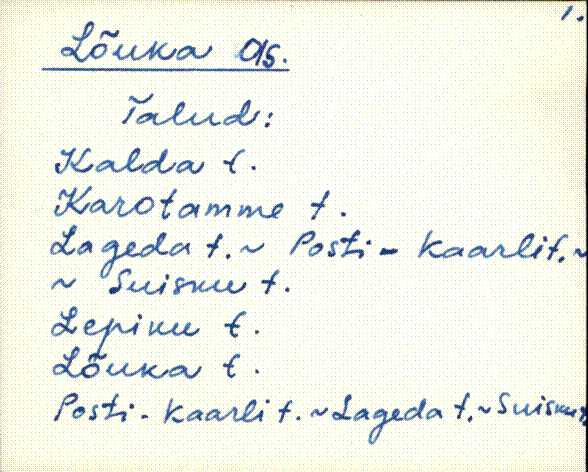 1.
Lõuka as.
Talud:
Kalda t.
Karotamme t.
Lageda t. ~ Posti-Kaarli t. ~
~ Suisku t.
Lepiku t.
Lõuka t.
Posti-Kaarli t. ~ Lageda t. ~ Suisku t.